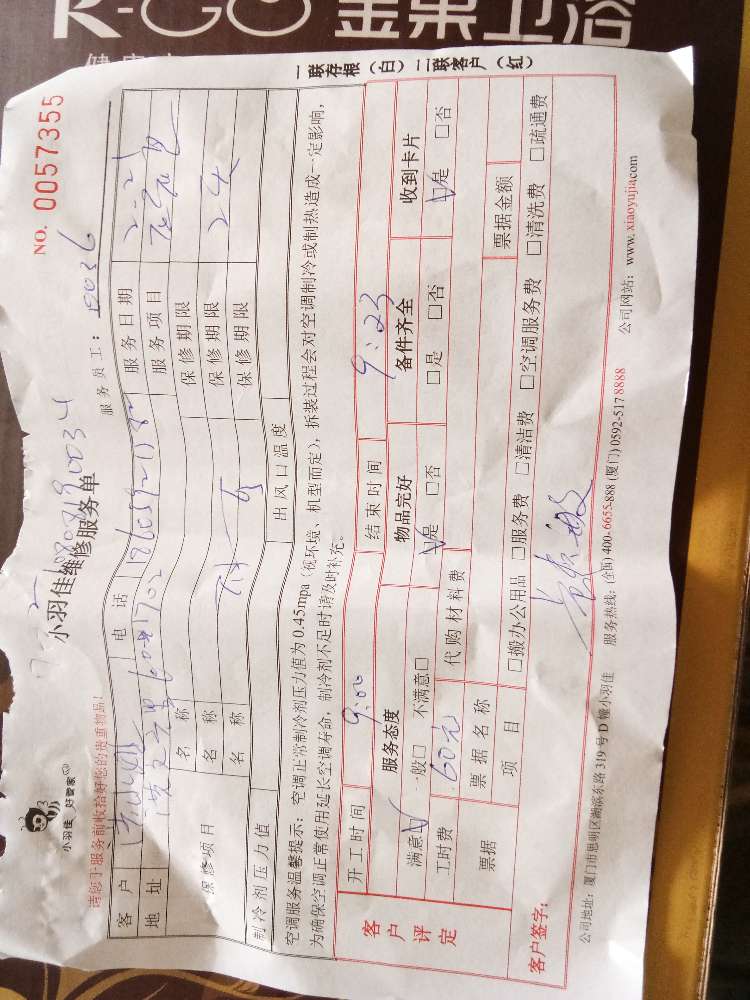 金
健康
一联存根（白）二联客户（红）
小羽佳 好管家
NO. 0057355
小羽佳维修服务单
服务员工：0036
请您于服务前收拾好您的贵重物品！
客户
电话
服务日期
2.21
地址
服务项目
保修项目
名称
保修期限
名称
保修期限
2天
名称
保修期限
制冷剂压力值
出风口温度
空调服务温馨提示：空调正常制冷剂压力值为0.45mpa（视环境、机型而定），拆装过程会对空调制冷或制热造成一定影响，
为确保空调正常使用延长空调寿命，制冷剂不足时请及时补充。
客户评定
开工时间
9:00
结束时间
9:23
服务态度
物品完好
备件齐全
收到卡片
满意☑ 一般□ 不满意□
☑是 □否
□是 □否
☑是 □否
工时费
60元
代购材料费
票据
票据名称
票据金额
项目
□搬办公用品 □服务费 □清洁费 □空调服务费 □清洗费 □疏通费
客户签字：
公司地址：厦门市思明区湖滨东路319号D幢小羽佳 服务热线：(全国) 400-6655-888 (厦门) 0592-5178888 公司网站：www.xiaoyujia.com